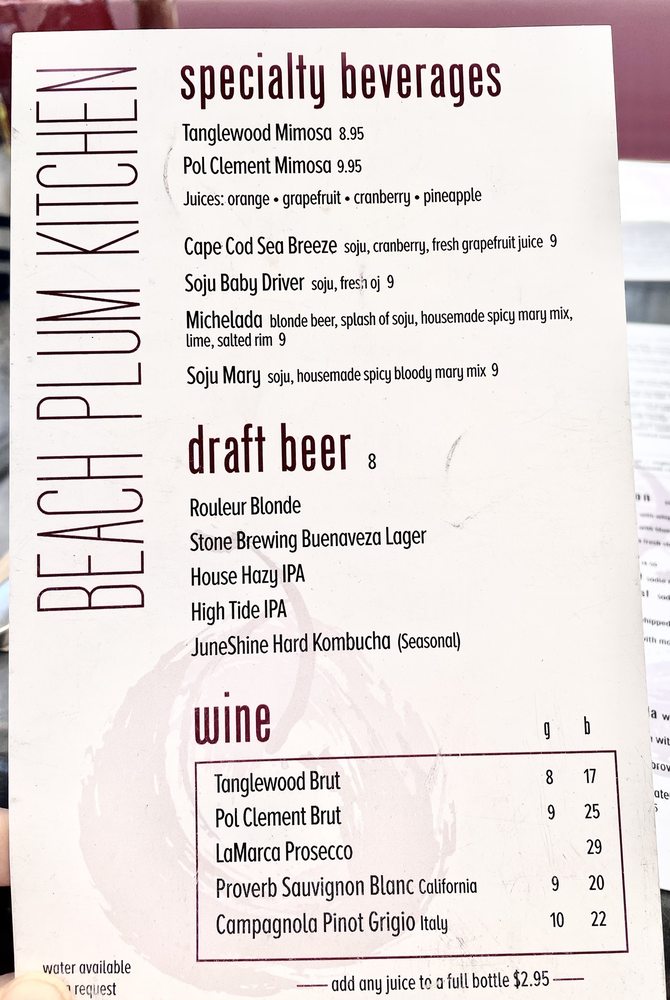 BEACH PLUM KITCHEN
specialty beverages
Tanglewood Mimosa 8.95
Pol Clement Mimosa 9.95
Juices: orange • grapefruit • cranberry • pineapple
Cape Cod Sea Breeze soju, cranberry, fresh grapefruit juice 9
Soju Baby Driver soju, fresh oj 9
Michelada blonde beer, splash of soju, housemade spicy mary mix,
lime, salted rim 9
Soju Mary soju, housemade spicy bloody mary mix 9
draft beer 8
Rouleur Blonde
Stone Brewing Buenaveza Lager
House Hazy IPA
High Tide IPA
JuneShine Hard Kombucha (Seasonal)
wine g b
Tanglewood Brut 8 17
Pol Clement Brut 9 25
LaMarca Prosecco 29
Proverb Sauvignon Blanc California 9 20
Campagnola Pinot Grigio Italy 10 22
add any juice to a full bottle $2.95
water available
request